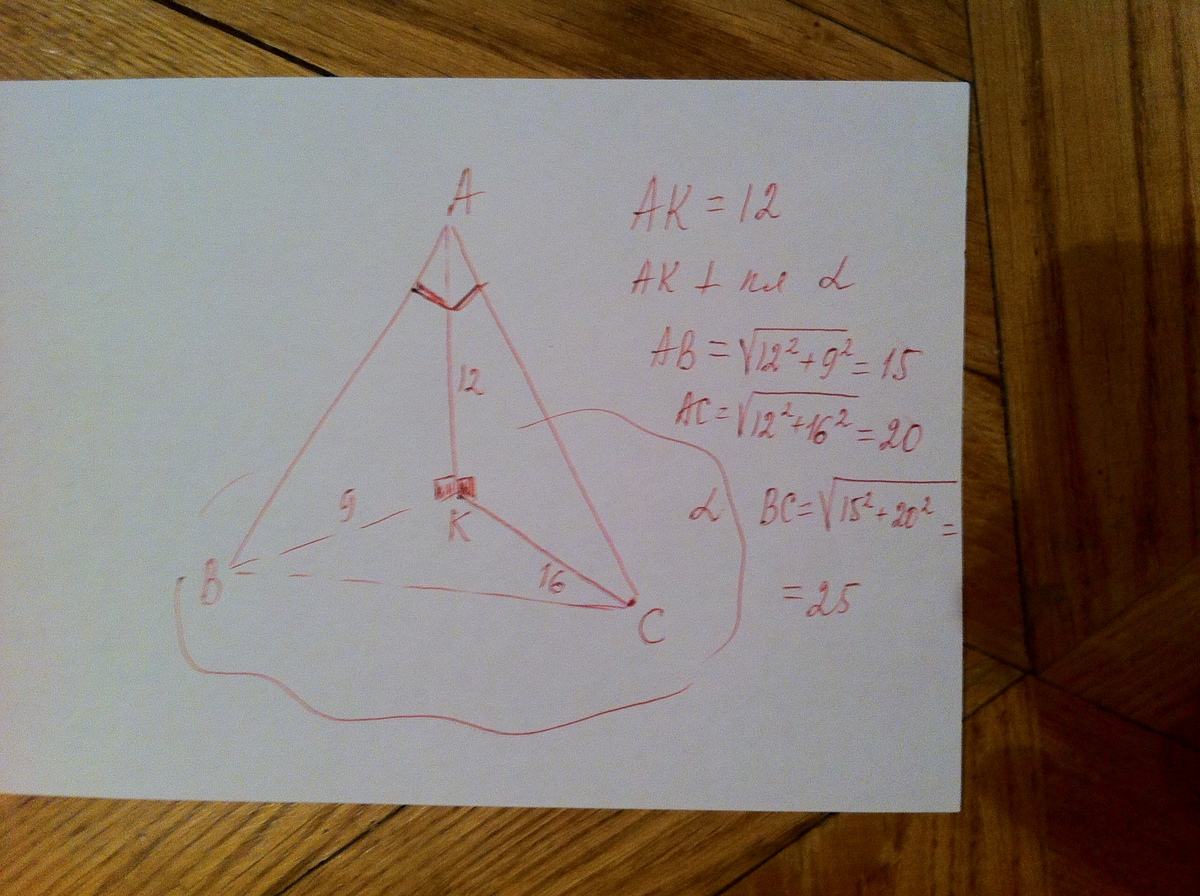 A
12
9
K
B
16
C
α
AK = 12
AK ⊥ пл α
AB = √12² + 9² = 15
AC = √12² + 16² = 20
BC = √15² + 20² =
= 25